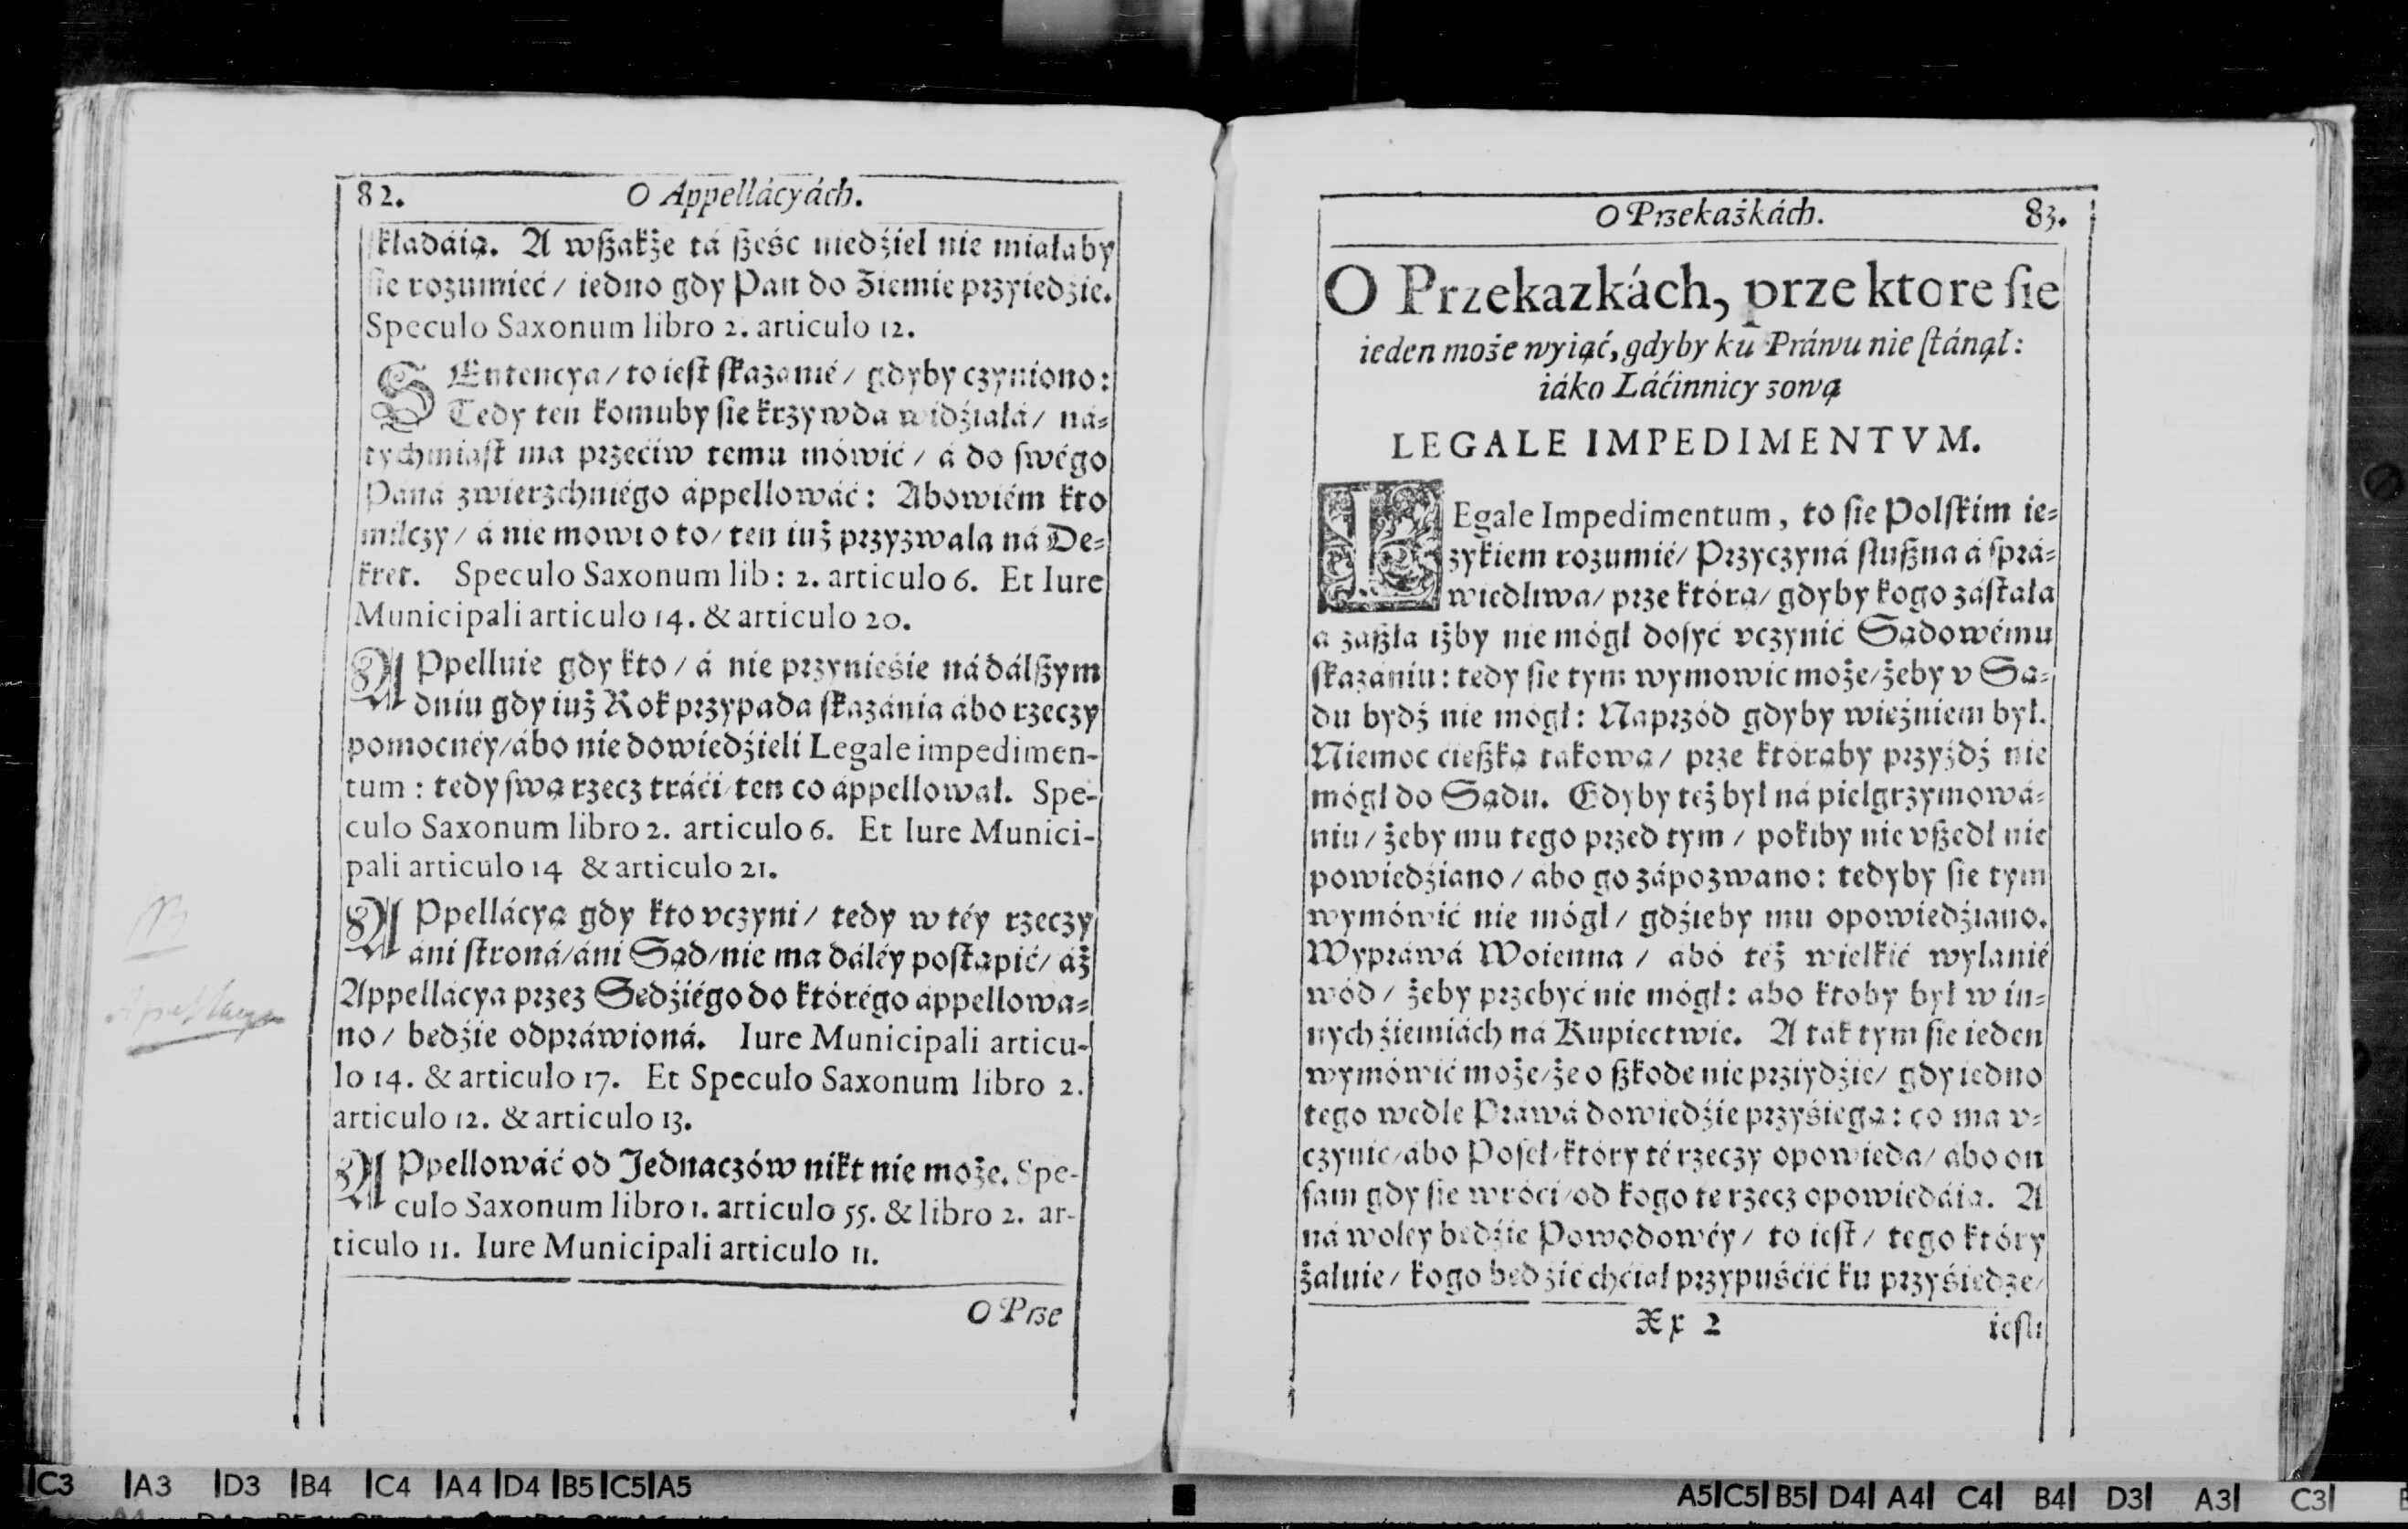 82. O Appellácyách.
ſkładáią. A wſzákże tá ſześć niedźiel nie miáłáby
ſie rozumieć / iedno gdy Pan do Ziemie przyiedzie.
Speculo Saxonum libro 2. articulo 12.
SEntencya / to ieſt ſkazanié / gdyby czyniono:
Tedy ten komuby ſie krzywdá widźiáłá / ná-
tychmiáſt ma przećiw temu mówić / á do ſwégo
Páná zwierzchniégo áppellowáć: Abowiém kto
milczy / á nie mowi o to / ten iuż przyzwala ná De-
kret. Speculo Saxonum lib: 2. articulo 6. Et Iure
Municipali articulo 14. & articulo 20.
APpelluie gdy kto / á nie przynieśie ná dálſzym
dniu gdy iuż Rok przypada ſkazánia ábo rzeczy
pomocnéy / ábo nie dowiedźieli Legale impedimen-
tum : tedy ſwą rzecz tráći / ten co áppellował. Spe-
culo Saxonum libro 2. articulo 6. Et Iure Munici-
pali articulo 14 & articulo 21.
APpellácyą gdy kto vczyni / tedy w téy rzeczy
áni ſtroná / áni Sąd / nie ma dáléy poſtąpić / áż
Appellácya przez Sędźiégo do którégo áppellowa-
no / będźie odpráwioná. Iure Municipali articu-
lo 14. & articulo 17. Et Speculo Saxonum libro 2.
articulo 12. & articulo 13.
APpellowáć od Jednaczów nikt nie może. Spe-
culo Saxonum libro 1. articulo 55. & libro 2. ar-
ticulo 11. Iure Municipali articulo 11.
O Prze
O Przekażkách. 83.
O Przekazkách, prze ktore ſie
ieden może wyiąć, gdyby ku Práwu nie ſtánął:
iáko Láćinnicy zową
LEGALE IMPEDIMENTVM.
LEgale Impedimentum, to ſie Polſkim ię-
zykiem rozumié / Przyczyná ſłuſzna á ſprá-
wiedliwa / prze którą / gdyby kogo záſtáłá
a zaſzłá iżby nie mógł doſyć vczynić Sądowému
ſkazániu: tedy ſie tym wymowić może / żeby v Są-
du bydź nie mógł: Naprzód gdyby więźniem był.
Niemoc ćięſzką takową / prze którąby przyjdź nie
mógł do Sądu. Gdyby też był ná pielgrzymowá-
niu / żeby mu tego przed tym / pokiby nie vſzedł nie
powiedźiano / ábo go zápozwano: tedyby ſie tym
wymówić nie mógł / gdźieby mu opowiedźiano.
Wypráwá Woienna / ábo też wielkié wylanié
wód / żeby przebyć nie mógł: ábo ktoby był w in-
nych źiemiách ná Kupiectwie. A ták tym ſie ieden
wymówić może / że o ſzkodę nie prziydźie / gdy iedno
tego wedle Práwá dowiedźie przyśięgą: co ma v-
czynić / ábo Poſeł / który té rzeczy opowieda / ábo on
ſam gdy ſie wróći / od kogo tę rzecz opowiedáią. A
ná woléy będźie Powodowéy / to ieſt / tego który
żáłuie / kogo będzie chćiał przypuśćić ku przyśiędze /
Xx 2 ieſli
C3 A3 D3 B4 C4 A4 D4 B5 C5 A5
A5 C5 B5 D4 A4 C4 B4 D3 A3 C3